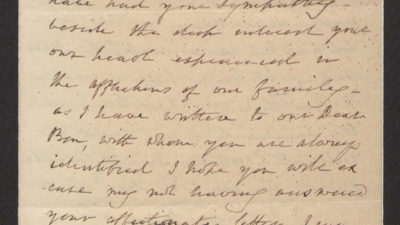 have had your Sympathy -
beside the deep interest your
own heart experienced in
the afflictions of our family -
as I have written to our Dear
Ben, with whom you are always
identified I hope you will ex
cuse my not having answered
your affectionate letter